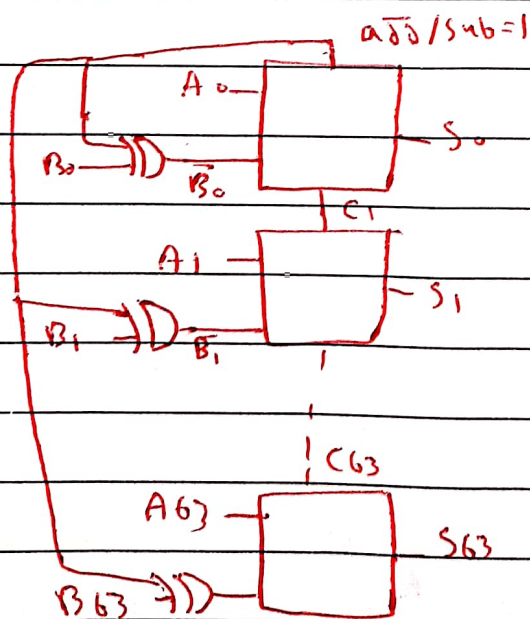 add/sub=1
A0
S0
B0
B̅0
C1
A1
S1
B1
B̅1
C63
A63
S63
B63